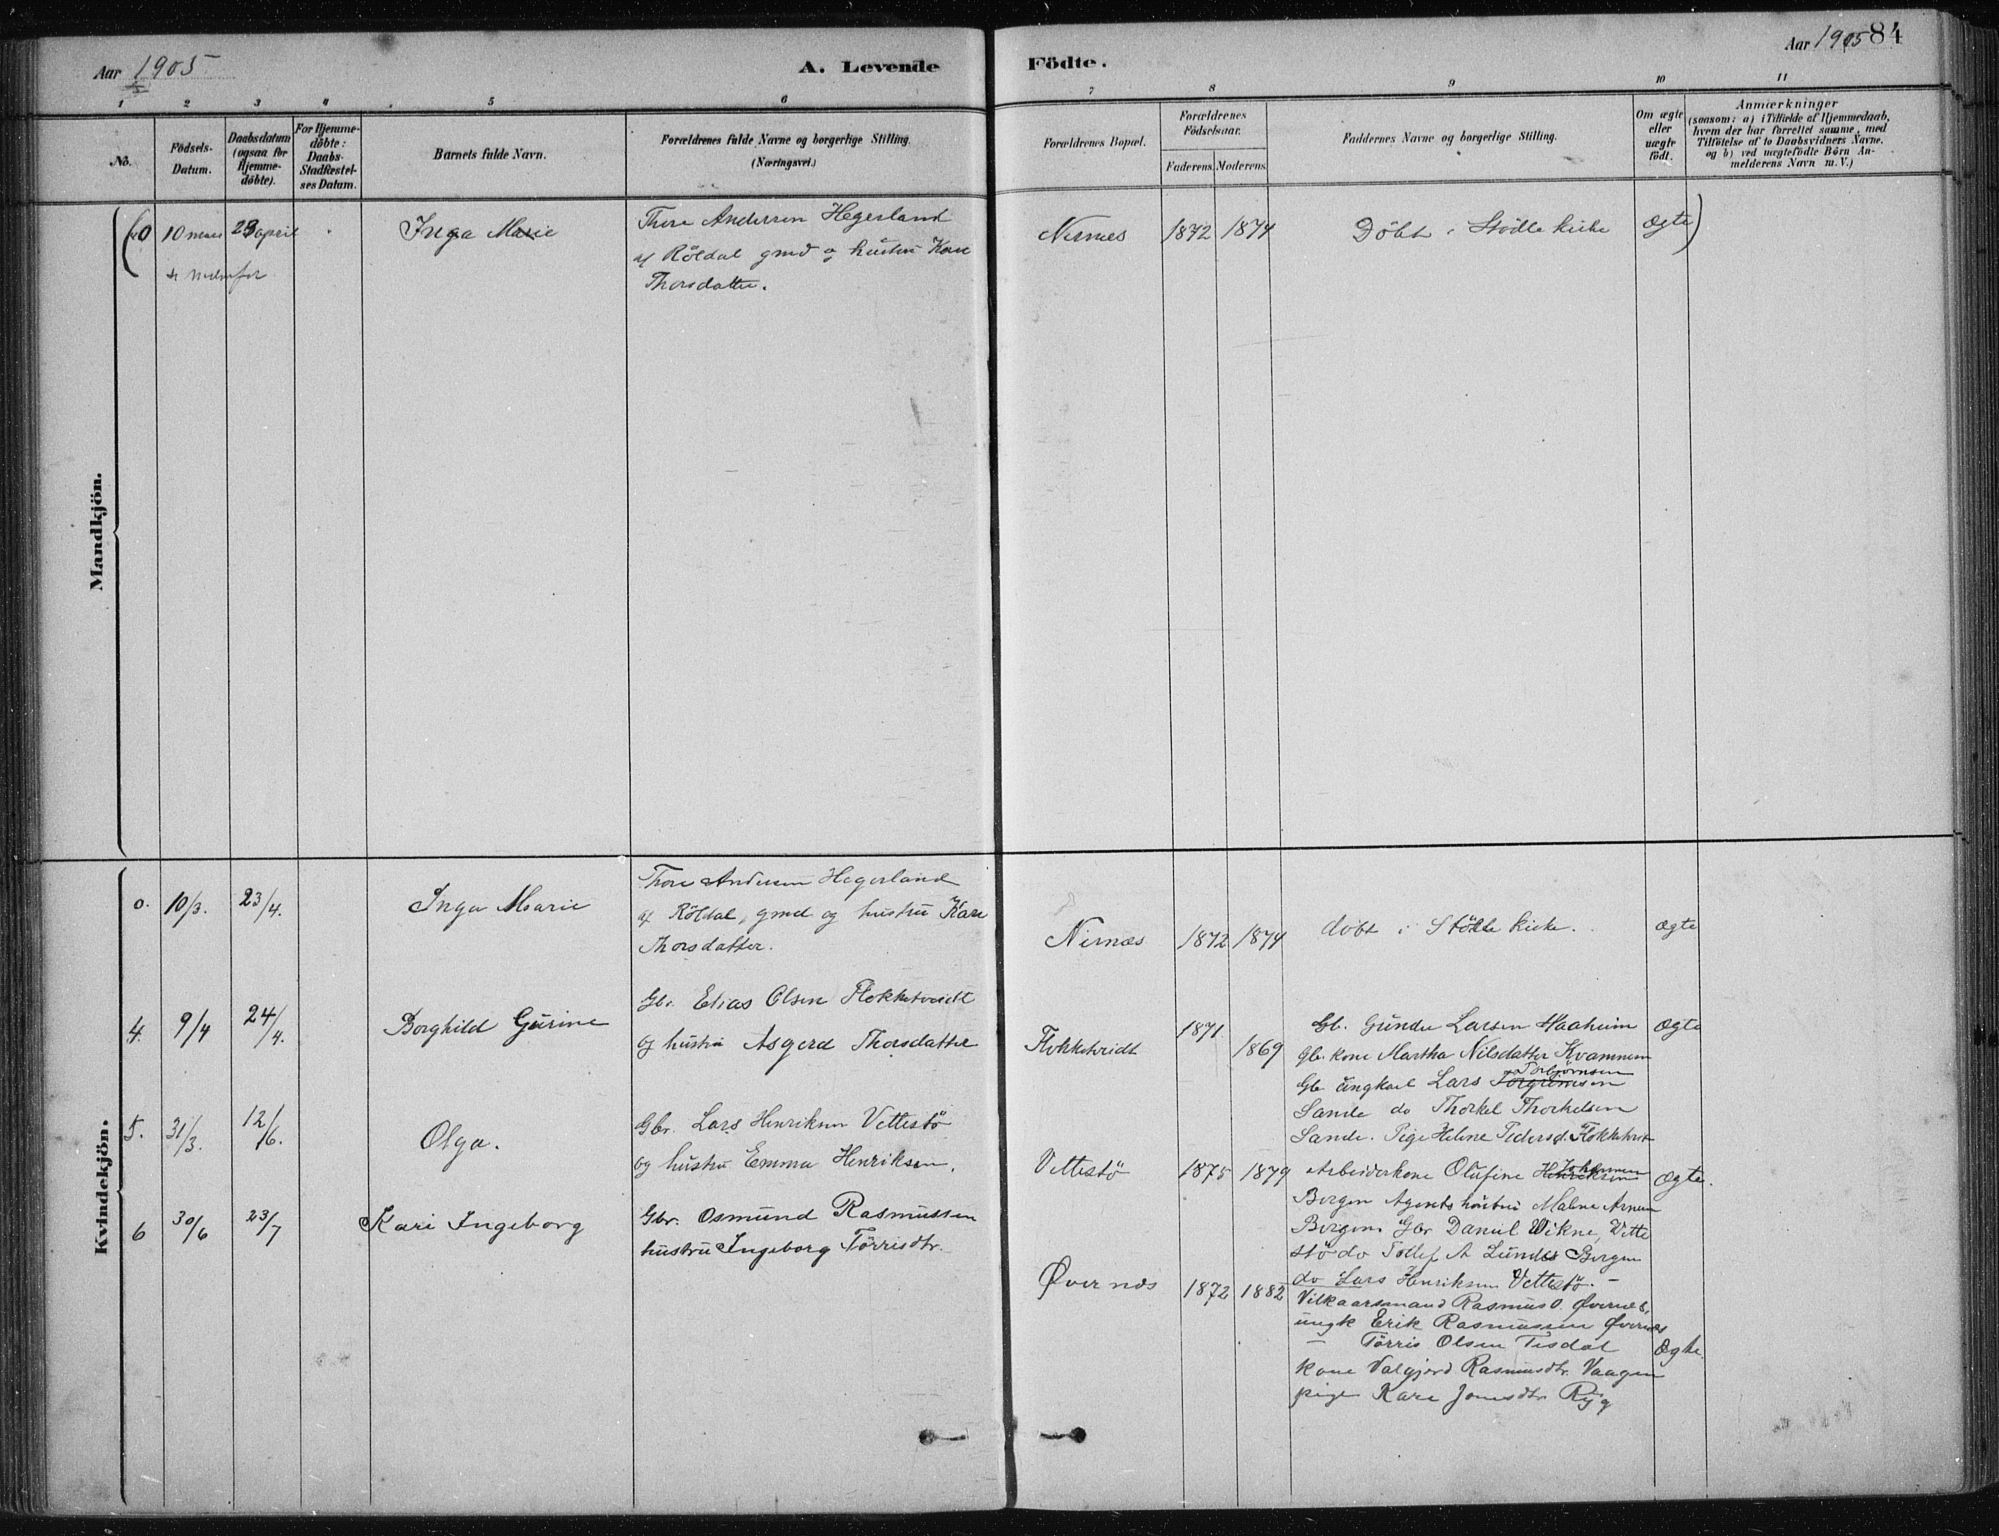 Aar 1905
A. Levende Födte.
Aar 1905 84
1 2 3 4 5 6 7 8 9 10 11
No.
Födsels-Datum.
Daabsdatum (ogsaa for Hjemme-döbte).
For Hjemme-döbte: Daabs-Stadfæstel-ses Datum.
Barnets fulde Navn.
Forældrenes fulde Navne og borgerlige Stilling. (Næringsvei.)
Forældrenes Bopæl.
Forældrenes Födselsaar.
Faderens. Moderens.
Faddernes Navne og borgerlige Stilling.
Om ægte eller uægte födt.
Anmærkninger
(saasom: a) i Tilfælde af Hjemmedaab,
hvem der har forrettet samme, med
Tilföielse af to Daabsvidners Navne,
og b) ved uægtefödte Börn An-
melderens Navn m. V.)
Mandkjön.
(0 10 mars 23 april Inga Marie Thore Andersen Hegerland Nernes 1872 1874 Döbt i Stödle kirke Ægte)
se nedenfor
af Röldal gmd og hustru Kari
Thorsdatter.
Kvindekjön.
0. 10/3. 23/4. Inga Marie Thore Andersen Hegerland
af Röldal, gmd og hustru Kari
Thorsdatter.
Nernæs 1872 1874 döbt i Stödle kirke. Ægte
4. 9/4 24/4. Borghild Gurine Gbr. Elias Olsen Flokketveidt
og hustru Asgerd Thorsdatter
Flokketveidt 1871 1869 Gb. Gunder Larsen Haaheim Ægte
Gbr. kone Martha Nilsdatter Kvamnem
Gbr. Ungkarl Lars Torgrimsen Torbjörnsen
Sande do Thorkel Thorkelsen
Sande. Pige Helene Pedersd. Flokketveit
5. 31/3. 12/6. Olga. Gbr. Lars Henriksen Vettestö
og hustru Emma Henriksen.
Vettestö 1875 1879 Arbeiderkone Olufine Henriksen Johannesen Ægte.
Bergen Agents hustru Maline Arnesen
Bergen. Gbr Daniel Vikne, Vette
stö do Tollef A Lunde Bergen
do Lars Henriksen Vettestö. -
6 30/6 23/7 Kari Ingeborg Gbr. Osmund Rasmussen
hustru Ingeborg Törrisdtr.
Øvernes 1872 1882 Vilkaarsmand Rasmus O. Øvernes,
ungk Erik Rasmussen Øvernes
- Törris Olsen Tesdal Ægte.
Kone Valgjerd Rasmusdtr. Vaagen
pige Kari Jonsdtr Ryg